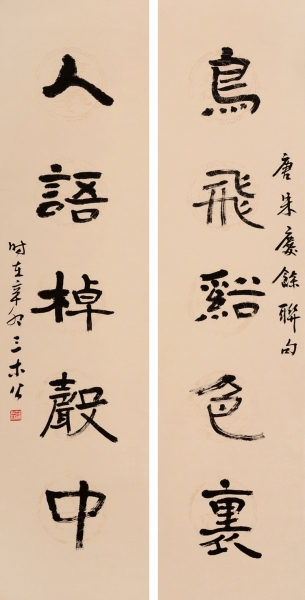 唐朱慶餘聯句
鳥飛谿色裏
人語棹聲中
时在辛卯三木公